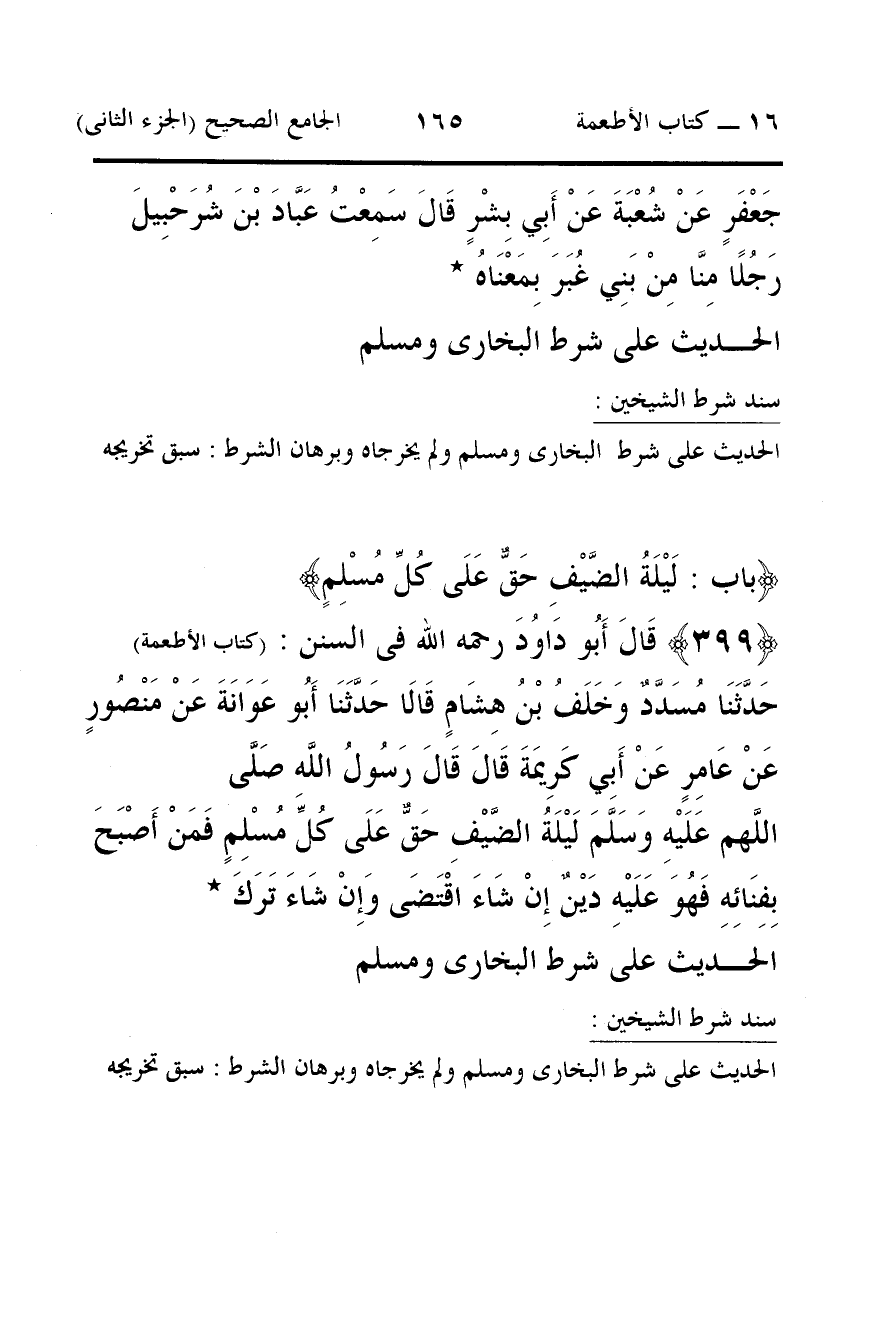 ١٦ ـــ كتاب الأطعمة ١٦٥ الجامع الصحيح (الجزء الثانى)
جَعْفَرٍ عَنْ شُعْبَةَ عَنْ أَبِي بِشْرٍ قَالَ سَمِعْتُ عَبَّادَ بْنَ شُرَحْبِيلَ
رَجُلًا مِنَّا مِنْ بَنِي غُبَرَ بِمَعْنَاهُ *
الحـــديث على شرط البخارى ومسلم
سند شرط الشيخين :
الحديث على شرط البخارى ومسلم ولم يخرجاه وبرهان الشرط : سبق تخريجه
﴿باب : لَيْلَةُ الضَّيْفِ حَقٌّ عَلَى كُلِّ مُسْلِمٍ﴾
﴿٣٩٩﴾ قَالَ أَبُو دَاوُدَ رحمه الله فى السنن : (كتاب الأطعمة)
حَدَّثَنَا مُسَدَّدٌ وَخَلَفُ بْنُ هِشَامٍ قَالَا حَدَّثَنَا أَبُو عَوَانَةَ عَنْ مَنْصُورٍ
عَنْ عَامِرٍ عَنْ أَبِي كَرِيمَةَ قَالَ قَالَ رَسُولُ اللَّهِ صَلَّى
اللَّهم عَلَيْهِ وَسَلَّمَ لَيْلَةُ الضَّيْفِ حَقٌّ عَلَى كُلِّ مُسْلِمٍ فَمَنْ أَصْبَحَ
بِفِنَائِهِ فَهُوَ عَلَيْهِ دَيْنٌ إِنْ شَاءَ اقْتَضَى وَإِنْ شَاءَ تَرَكَ *
الحـــديث على شرط البخارى ومسلم
سند شرط الشيخين :
الحديث على شرط البخارى ومسلم ولم يخرجاه وبرهان الشرط : سبق تخريجه